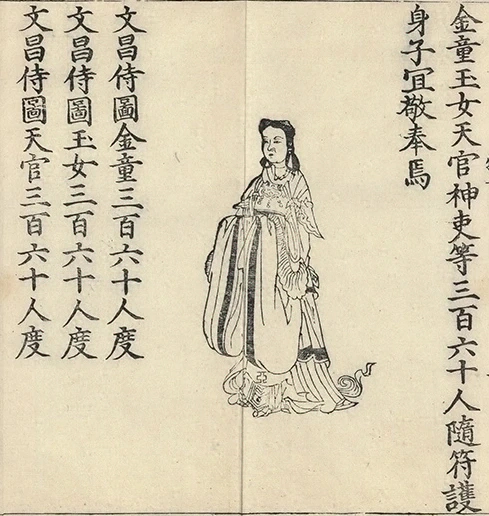 金童玉女天官神吏等三百六十人隨符護
身子宜敬奉焉
文昌侍圖金童三百六十人度
文昌侍圖玉女三百六十人度
文昌侍圖天官三百六十人度